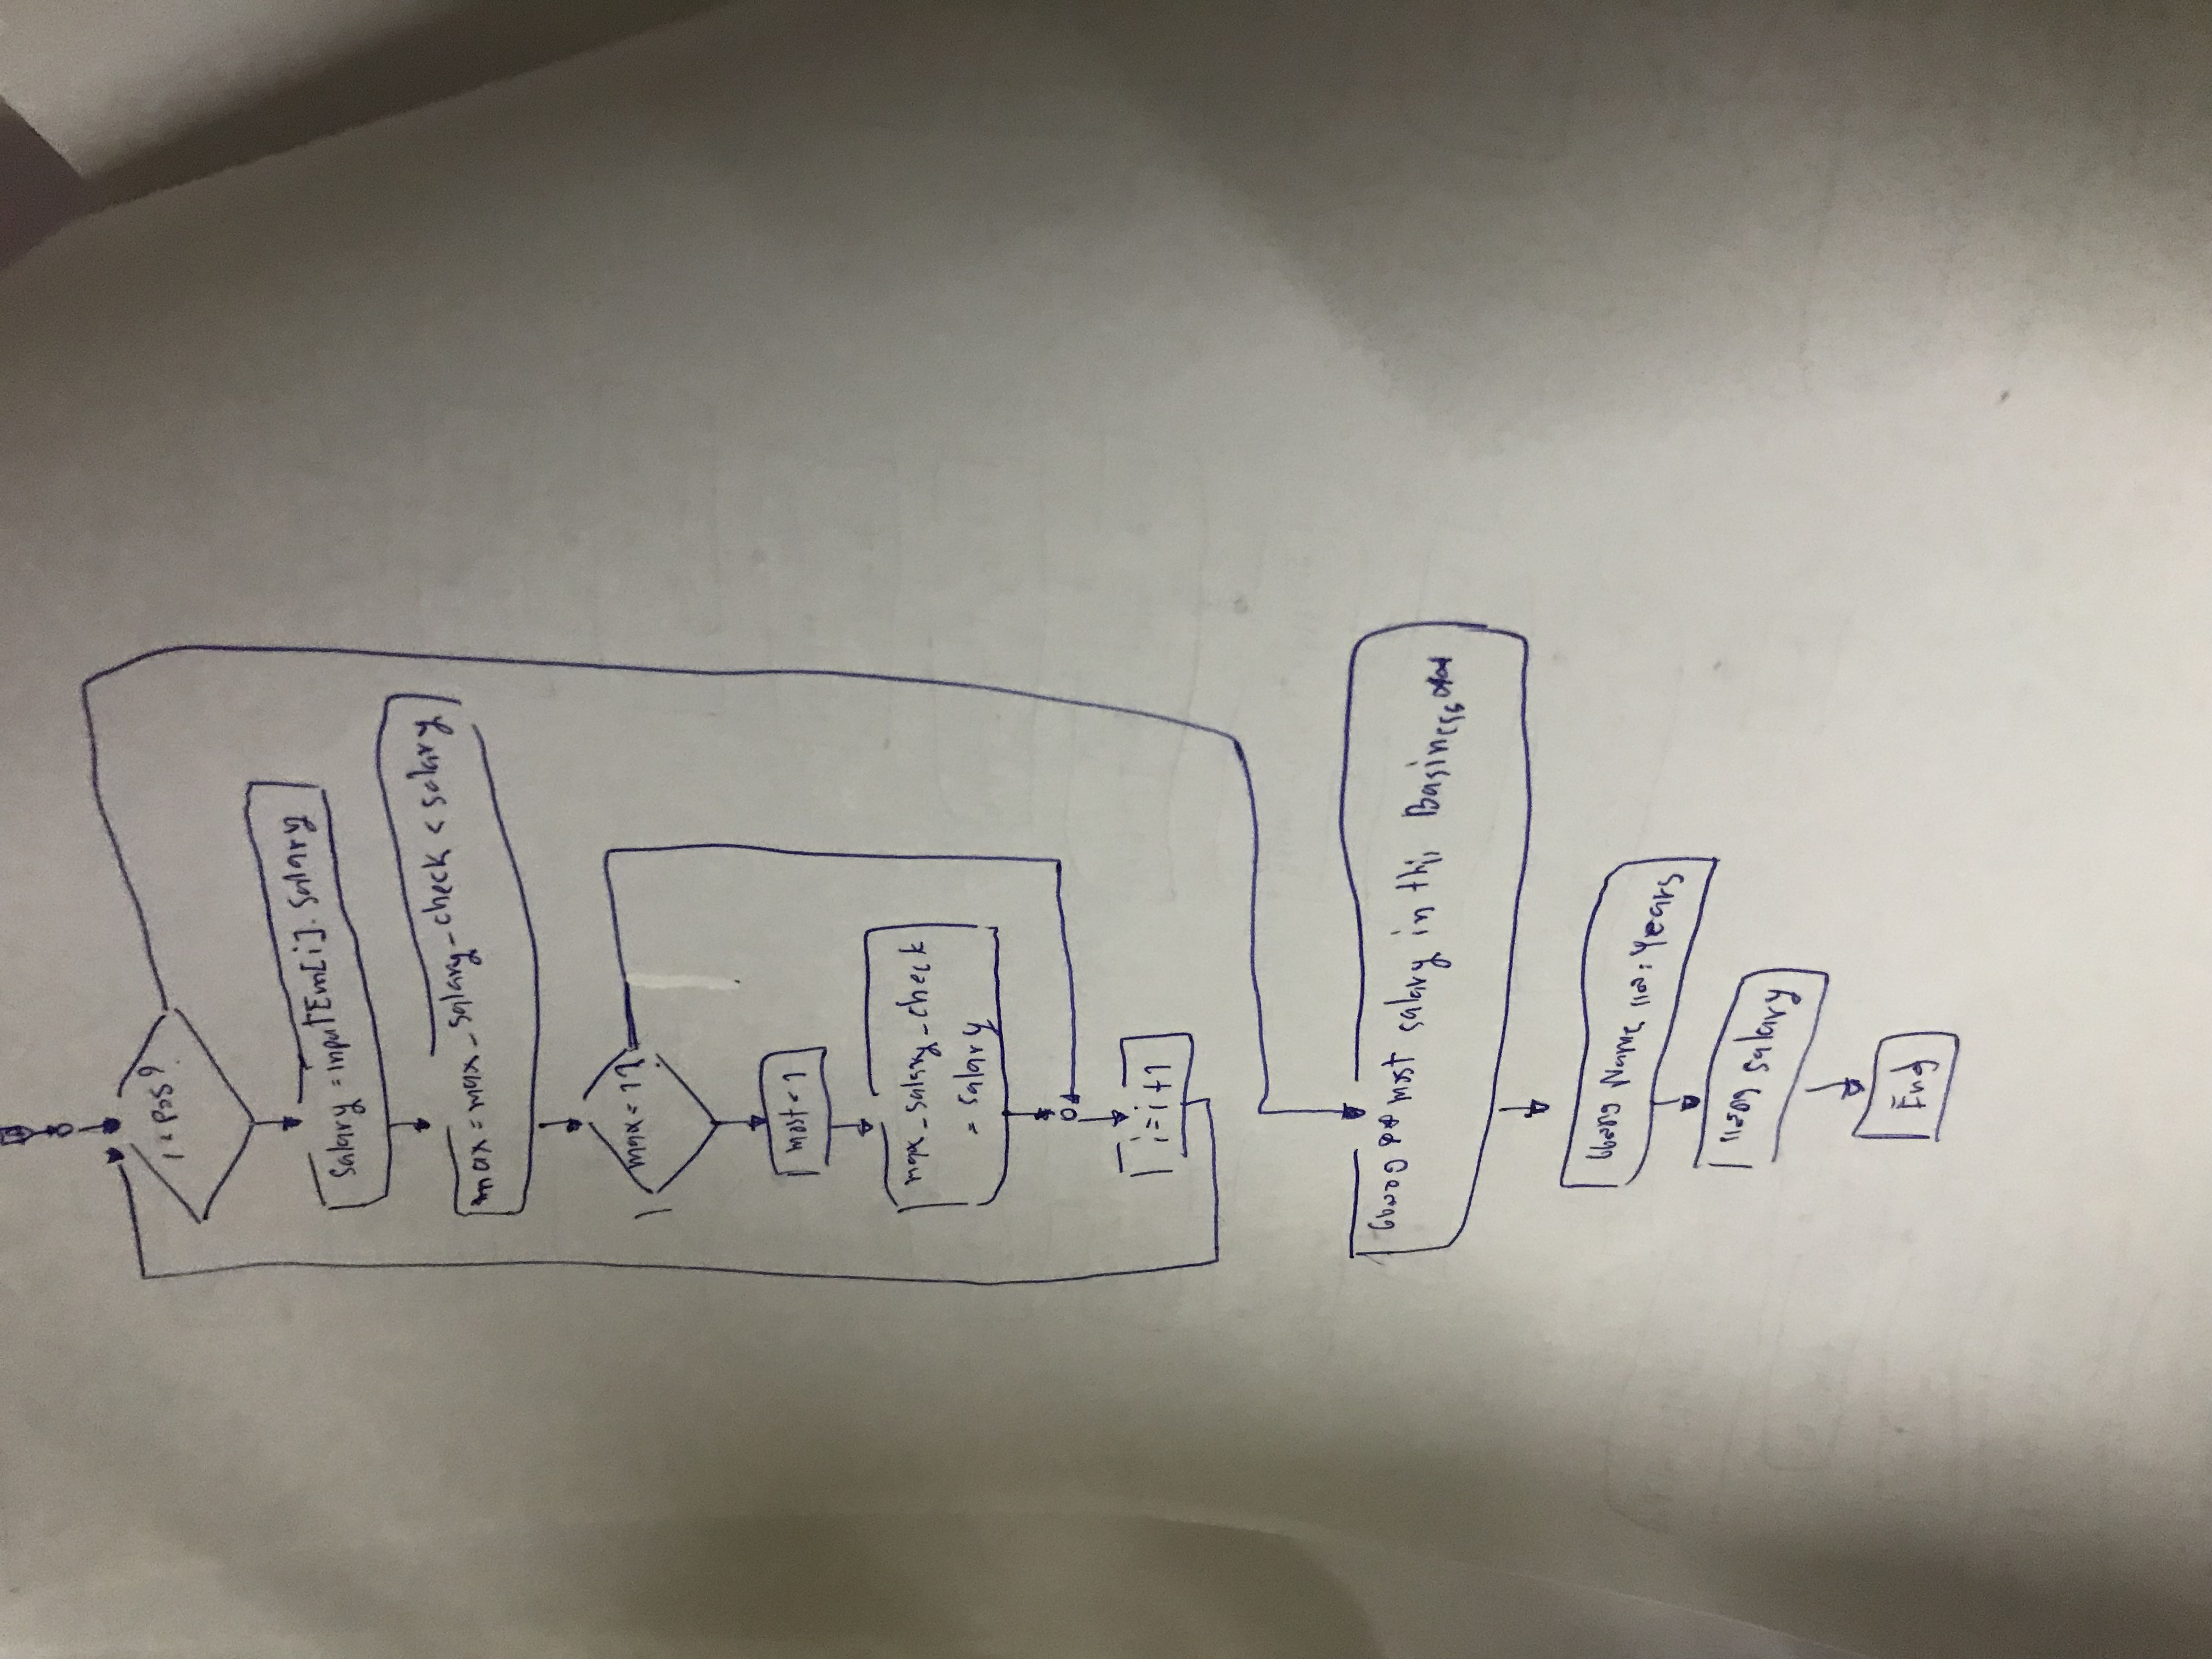 i < pos?
salary = inputEm[i].salary
max = max_salary_check < salary
max = 1?
most = 1
max_salary_check
= salary
i = i + 1
แสดง ** most salary in this Business **
แสดง Name และ Years
แสดง salary
End